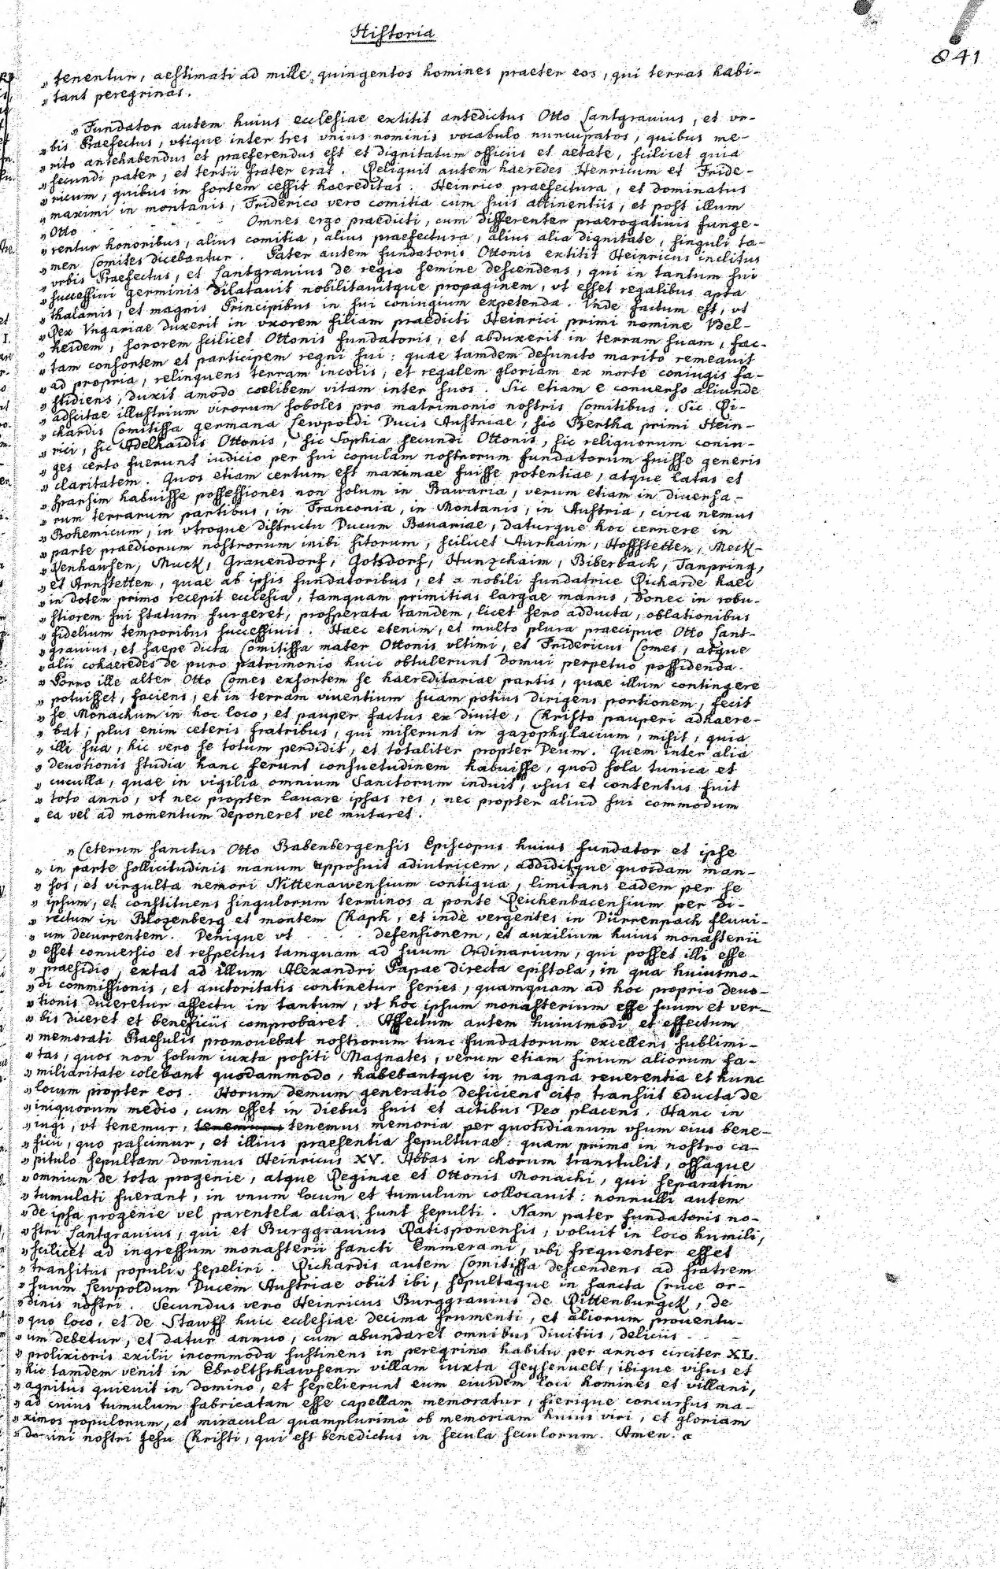 Historia
841
„ tenentur, aestimati ad mille quingentos homines praeter eos, qui terras habi-
„ tant peregrinas.
„ Fundator autem huius ecclesiae extitit antedictus Otto Lantgrauius, et vr-
„ bis Praefectus, vtique inter tres vnius nominis vocabulo nuncupatos, quibus me-
„ rito antehabendus et praeferendus est et dignitatum officiis et aetate, scilicet quia
„ secundi pater, et tertii frater erat. Reliquit autem haeredes Henricum et Fride-
„ ricum, quibus in sortem cessit haereditas. Heinrico praefectura, et dominatus
„ maximi in montanis, Friderico vero comitia cum suis attinentiis, et post illum
„ Otto . . . . Omnes ergo praedicti, cum differenter praerogatiuis funge-
„ rentur honoribus, alius comitia, alius praefectura, alius alia dignitate, singuli ta-
„ men Comites dicebantur. Pater autem fundatoris Ottonis extitit Heinricus inclitus
„ vrbis Praefectus, et Lantgrauius de regio semine descendens, qui in tantum sui
„ successiui germinis dilatauit nobilitauitque propaginem, vt esset regalibus apta
„ thalamis, et magnis Principibus in sui coniugium expetenda. Vnde factum est, vt
„ Rex Vngariae duxerit in vxorem filiam praedicti Heinrici primi nomine Bel-
„ heidem, sororem scilicet Ottonis fundatoris, et abduxerit in terram suam, fac-
„ tam consortem et participem regni sui: quae tamdem defuncto marito remeauit
„ ad propria, relinquens terram incolis, et regalem gloriam ex morte coniugis fa-
„ stidiens, duxit amodo coelibem vitam inter suos. Sic etiam e conuerso aliunde
„ adscitae illustrium virorum soboles pro matrimonio nostris Comitibus. Sic Ri-
„ chardis Comitissa germana Lewpoldi Ducis Austriae, sic Bertha primi Hein-
„ rici, sic Adelhaidis Ottonis, sic Sophia secundi Ottonis, sic reliquorum coniu-
„ ges certo fuerunt iudicio per sui copulam nostrorum fundatorum fuisse generis
„ claritatem. Quos etiam certum est maximae fuisse potentiae, atque latas et
„ sparsim habuisse possessiones non solum in Bawaria, verum etiam in diuersa-
„ rum terrarum partibus, in Franconia, in Montanis, in Austria, circa nemus
„ Bohemicum, in vtroque districtu Ducum Bauariae, daturque hoc cernere in
„ parte praediorum nostrorum inibi sitorum, scilicet Aurhaim, Hoffstetten, Meck-
„ henhausen, Muck, Grauendorf, Gotsdorf, Hunzchaim, Biberbach, Tanpring,
„ et Arnstetten, quae ab ipsis fundatoribus, et a nobili fundatrice Richarde haec
„ in dotem primo recepit ecclesia, tamquam primitias largae manus, donec in robu-
„ stiorem sui statum surgeret, prosperata tamdem, licet sero adducta, oblationibus
„ fidelium temporibus successiuis. Haec etenim, et multo plura praecipue Otto Lant-
„ grauius, et saepe dicta Comitissa mater Ottonis vltimi, et Fridericus Comes, atque
„ alii cohaeredes de puro patrimonio huic obtulerunt domui perpetuo possidenda.
„ Porro ille alter Otto Comes exsortem se haereditariae partis, quae illum contingere
„ potuisset, faciens, et in terram viuentium suam potius dirigens portionem, fecit
„ se Monachum in hoc loco, et pauper factus ex diuite, Christo pauperi adhaere-
„ bat; plus enim ceteris fratribus, qui miserunt in gazophylacium, misit, quia
„ illi sua, hic vero se totum perdidit, et totaliter propter Deum. Quem inter alia
„ deuotionis studia hanc ferunt consuetudinem habuisse, quod sola tunica et
„ cuculla, quae in vigilia omnium Sanctorum induit, vsus et contentus fuit
„ toto anno, vt nec propter lauare ipsas res, nec propter aliud sui commodum
„ ea vel ad momentum deponeret vel mutaret.
„ Ceterum sanctus Otto Babenbergensis Episcopus huius fundator et ipse
„ in parte sollicitudinis manum apposuit adiutricem, addiditque quosdam man-
„ sos, et virgulta nemori Nittenawensium contigua, limitans eadem per se
„ ipsum, et constituens singulorum terminos a ponte Reichenbacensium per di-
„ rectum in Blozenberg et montem Chaph, et inde vergentes in Dürrenpach fluui-
„ um decurrentem. Denique vt . . . defensionem, et auxilium huius monasterii
„ esset conuersio et respectus tamquam ad suum Ordinarium, qui posset illi esse
„ praesidio, extat ad illum Alexandri Papae directa epistola, in qua huiusmo-
„ di commissionis, et auctoritatis continetur series, quamquam ad hoc proprio deuo-
„ tionis duceretur affectu in tantum, vt hoc ipsum monasterium esse suum et ver-
„ bis diceret et beneficiis comprobaret. Affectum autem huiusmodi et effectum
„ memorati Praesulis promouebat nostrorum tunc fundatorum excellens sublimi-
„ tas, quos non solum iuxta positi Magnates, verum etiam finium aliorum fa-
„ miliaritate colebant quodammodo, habebantque in magna reuerentia et hunc
„ locum propter eos. Horum demum generatio deficiens cito transiit educta de
„ iniquorum medio, cum esset in diebus suis et actibus Deo placens. Hanc in
„ iugi, vt tenemur, tenemus memoria per quotidianum vsum eius bene-
„ ficii, quo pascimur, et illius praesentia sepulturae: quam primo in nostro ca-
„ pitulo sepultam dominus Heinricus XV. Abbas in chorum transtulit, ossaque
„ omnium de tota progenie, atque Reginae et Ottonis Monachi, qui separatim
„ tumulati fuerant, in vnum locum et tumulum collocauit: nonnulli autem
„ de ipsa progenie vel parentela alias sunt sepulti. Nam pater fundatoris no-
„ stri Lantgrauius, qui et Burggrauius Ratisponensis, voluit in loco humili,
„ scilicet ad ingressum monasterii sancti Emmerami, vbi frequenter esset
„ transitus populi, sepeliri. Richardis autem Comitissa descendens ad fratrem
„ suum Lewpoldum Ducem Austriae obiit ibi, sepultaque in sancta Cruce or-
„ dinis nostri. Secundus vero Heinricus Burggrauius de Rittenburgck, de
„ quo loco, et de Stawff huic ecclesiae decima frumenti, et aliorum prouentu-
„ um debetur, et datur annuo, cum abundaret omnibus diuitiis, deliciis . .
„ prolixioris exilii incommoda sustinens in peregrino habitu per annos circiter XL.
„ hic tamdem venit in Ebrolfshawsenn villam iuxta Geysenuelt, ibique visus et
„ agnitus quieuit in domino, et sepelierunt eum eiusdem loci homines et villani,
„ ad cuius tumulum fabricatam esse capellam memoratur, fierique concursus ma-
„ ximos populorum, et miracula quamplurima ob memoriam huius viri, et gloriam
„ domini nostri Jesu Christi, qui est benedictus in secula seculorum. Amen.